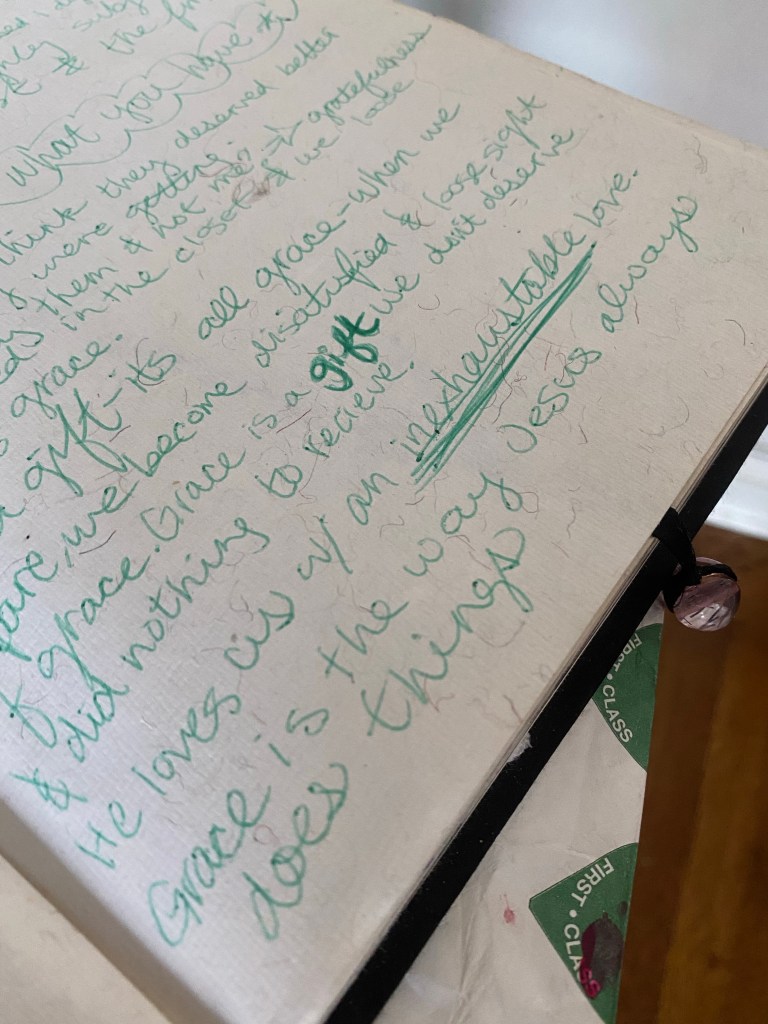 & the
what you have
think they deserved better
were getting.
them & not me? gratefulness
in the closet & we lose
grace.
a gift - its all grace - when we
pare, we become disatisfied & loose sight
f grace. Grace is a gift we don't deserve
& did nothing to recieve.
He loves us w/ an inexhaustable love.
Grace is the way Jesus always
does things
FIRST • CLASS
FIRST • CLASS